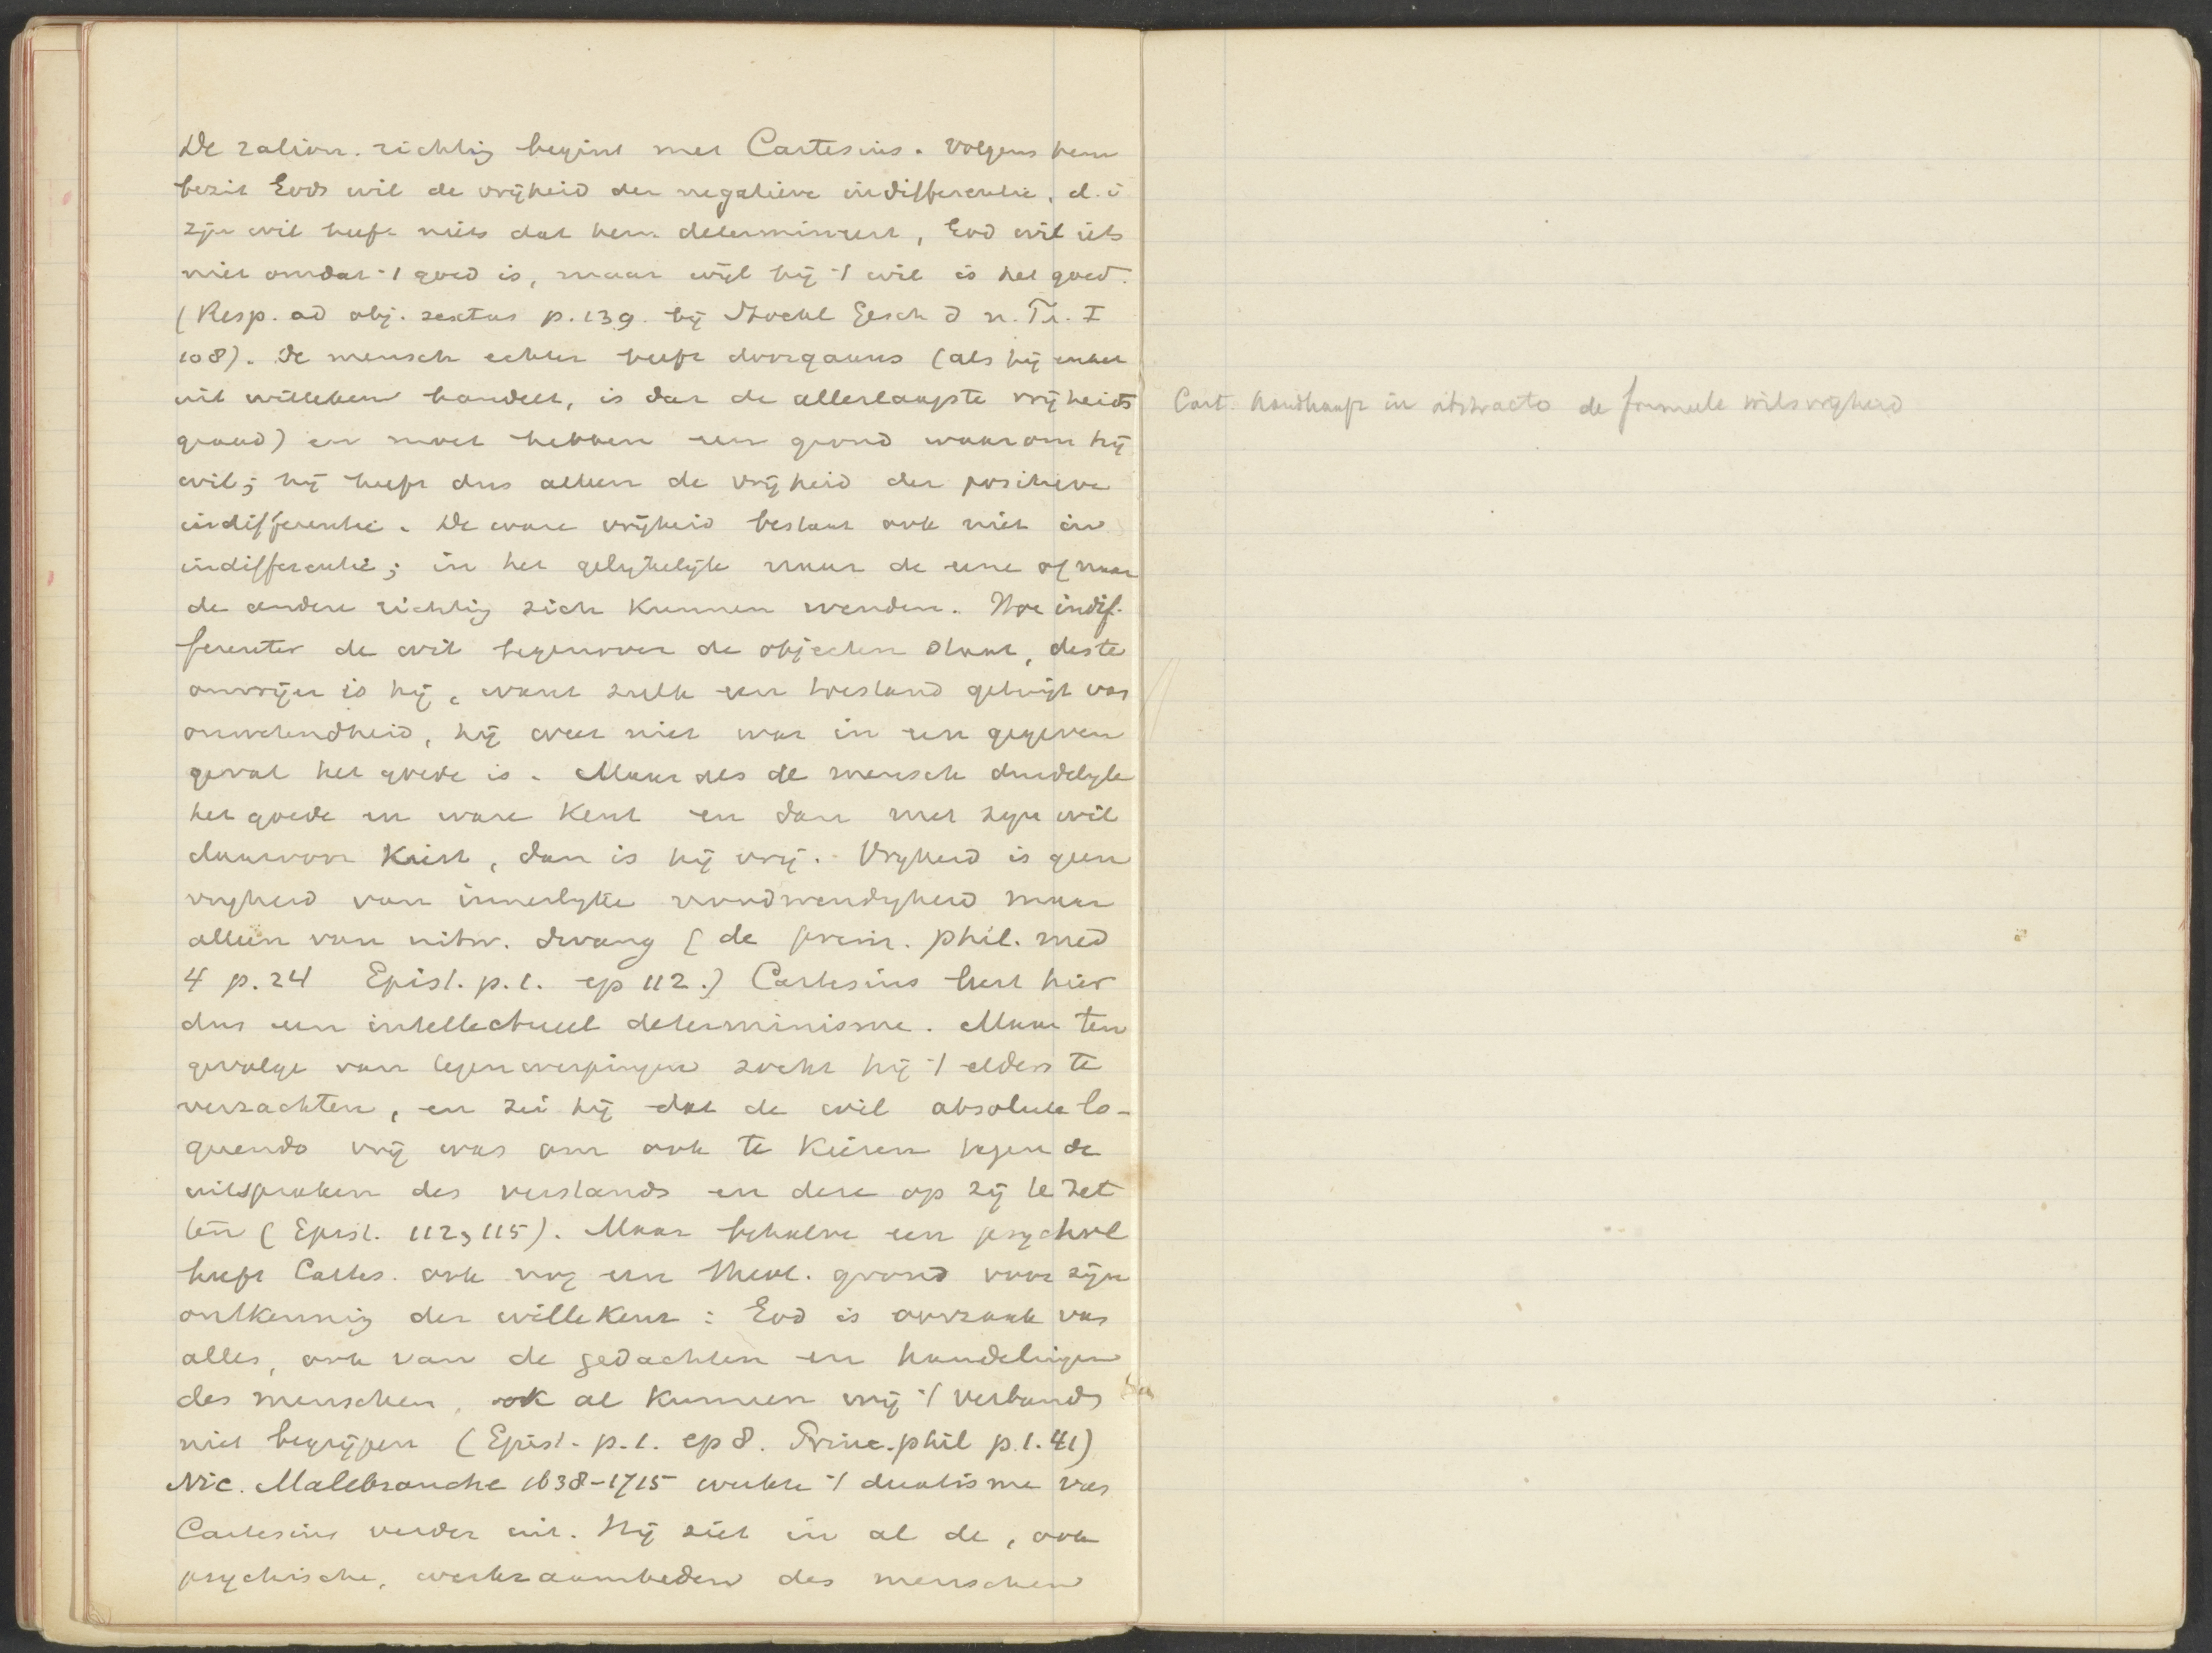 De ration. richtig begint met Cartesius. Volgens hem
bezit Gods wil de vrijheid der negatieve indifferentie, d.i
zijn wil heeft niets dat hem determineert, God wil iets
niet omdat 't goed is, maar wijl hij 't wil is het goed.
(Resp. ad obj. sextas p. 139. bij Stoeckl Gesch d n. Ph. I
108). De mensch echter heeft doorgaans (als hij enkel
uit willekeur handelt, is dat de allerlaagste vrijheids
graad) en moet hebben een grond waarom hij
wil; hij heeft dus alleen de vrijheid der positieve
indifferentie. De ware vrijheid bestaat ook niet in
indifferentie; in het gelijkelijk naar de eene of naar
de andere richtig zich kunnen wenden. Hoe indif-
ferenter de wil tegenover de objecten staat, deste
onvrijer is hij, want zulk een toestand getuigt van
onwetendheid, hij weet niet wat in een gegeven
geval het goede is. Maar als de mensch duidelijk
het goede en ware kent en dan met zijn wil
daarvoor kiest, dan is hij vrij. Vrijheid is geen
vrijheid van innerlijke noodwendigheid maar
alleen van uitw. dwang (de prim. phil. med
4 p. 24 Epist. p. 1. ep 112.) Cartesius leert hier
dus een intellectueel determinisme. Maar ten
gevolge van tegenwerpingen zocht hij 't elders te
verzachten, en zei hij dat de wil absolute lo-
quendo vrij was om ook te kiezen tegen de
uitspraken des verstands en deze op zij te zet
ten (Epist. 112, 115). Maar behalve een psychol
heeft Cartes. ook nog een theol. grond voor zijn
ontkennig der willekeur: God is oorzaak van
alles, ook van de gedachten en handelingen
des menschen, ook al kunnen wij 't verband
niet begrijpen (Epist. p. 1. ep 8. Princ. phil p. 1. 41)
Nic. Malebranche 1638-1715 werkte 't dualisme van
Cartesius verder uit. Hij ziet in al de, ook
psychische, werkzaamheden des menschen
Cart. handhaaft in abstracto de formeele wilsvrijheid